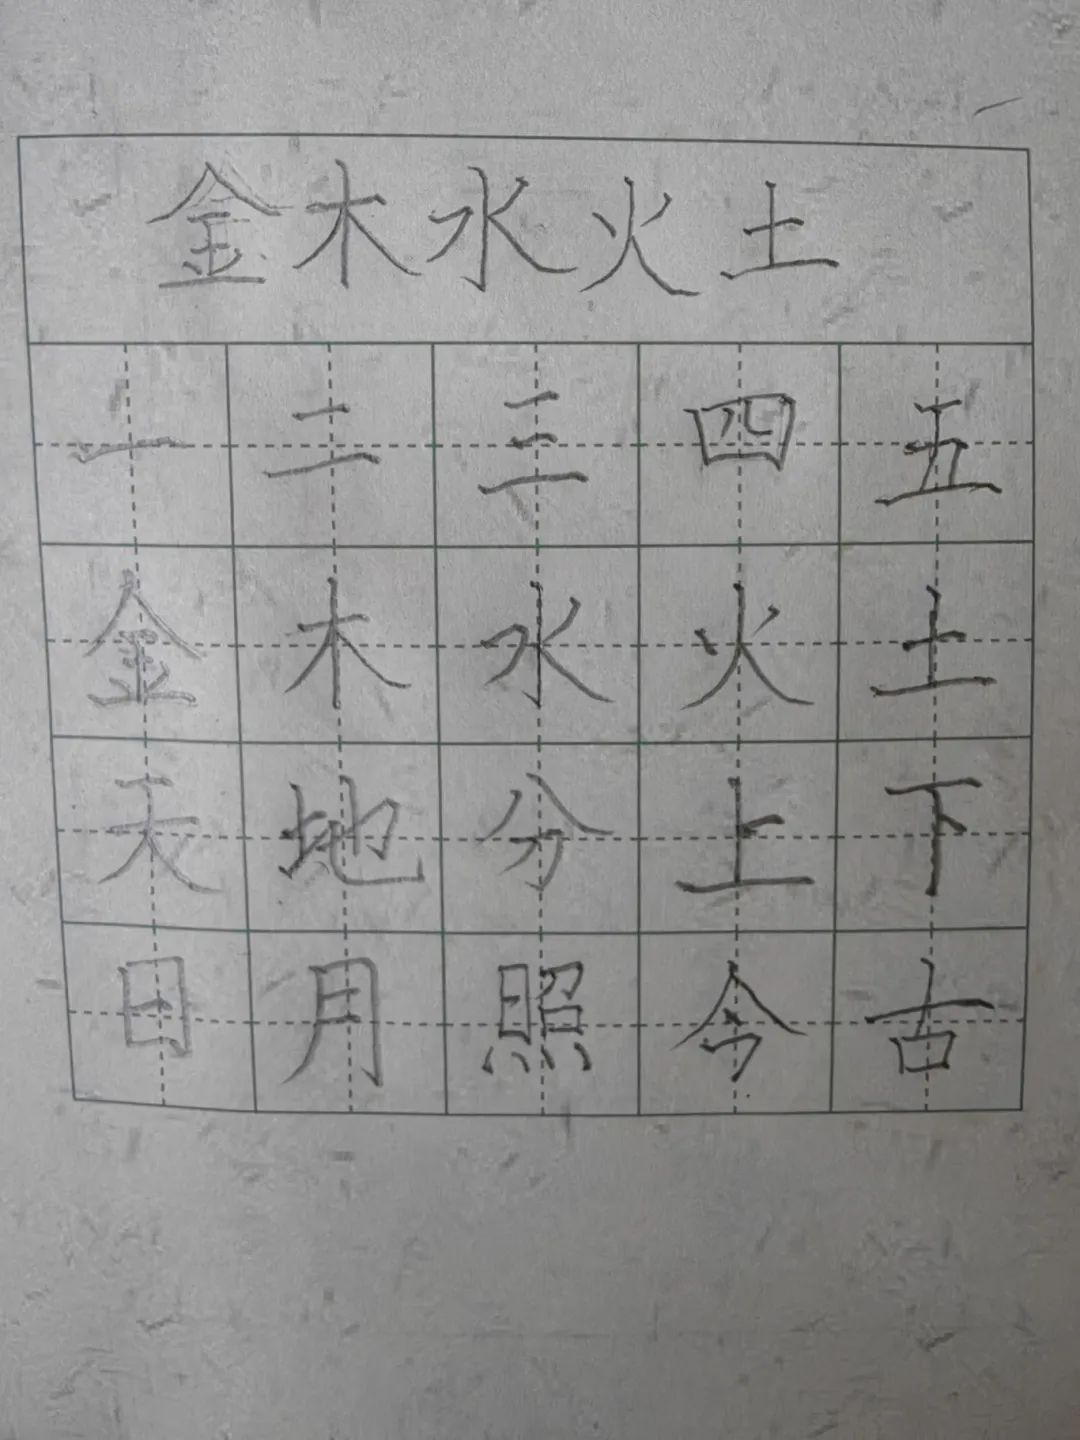 金木水火土
一二三四五
金木水火土
天地分上下
日月照今古